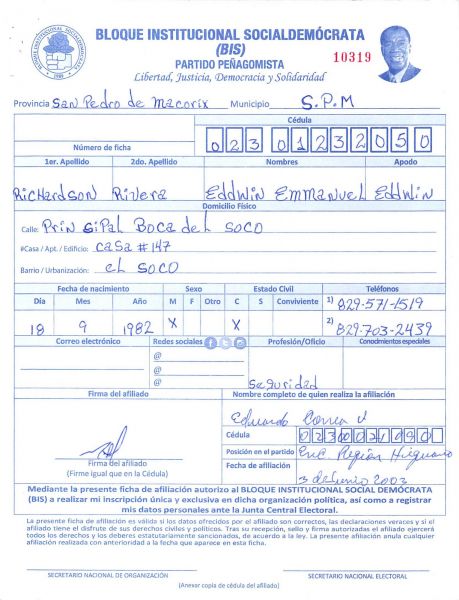 BLOQUE INSTITUCIONAL SOCIALDEMÓCRATA
(BIS)
PARTIDO PEÑAGOMISTA
Libertad, Justicia, Democracia y Solidaridad
10319
Provincia San Pedro de Macorix Municipio S.P.M
Cédula
Número de ficha 023 0123205 0
1er. Apellido 2do. Apellido Nombres Apodo
Richardson Rivera Eddwin Emmanuel Eddwin
Domicilio Físico
Calle: Prin siPal Boca del soco
#Casa / Apt. / Edificio: casa #147
Barrio / Urbanización: el soco
Fecha de nacimiento Sexo Estado Civil Teléfonos
Día Mes Año M F Otro C S Conviviente 1) 829-571-1519
18 9 1982 X X 2) 829-703-2439
Correo electrónico Redes sociales Profesión/Oficio Conocimientos especiales
@
@
@ seguridad
Firma del afiliado Nombre completo de quien realiza la afiliación
Eduardo Correa
Cédula
Posición en el partido
Firma del afiliado
(Firme igual que en la Cédula)
Fecha de afiliación
3 de Junio 2003
Mediante la presente ficha de afiliación autorizo al BLOQUE INSTITUCIONAL SOCIAL DEMÓCRATA
(BIS) a realizar mi inscripción única y exclusiva en dicha organización política, así como a registrar
mis datos personales ante la Junta Central Electoral.
La presente ficha de afiliación es válida si los datos ofrecidos por el afiliado son correctos, las declaraciones veraces y si el
afiliado tiene el disfrute de sus derechos civiles y políticos. Tras su recepción, sello y firma autorizadas el afiliado ejercerá
todos los derechos y los deberes estatutariamente sancionados, de acuerdo a la ley. La presente afiliación anula cualquier
afiliación realizada con anterioridad a la fecha que aparece en esta ficha.
SECRETARIO NACIONAL DE ORGANIZACIÓN SECRETARIO NACIONAL ELECTORAL
(Anexar copia de cédula del afiliado)